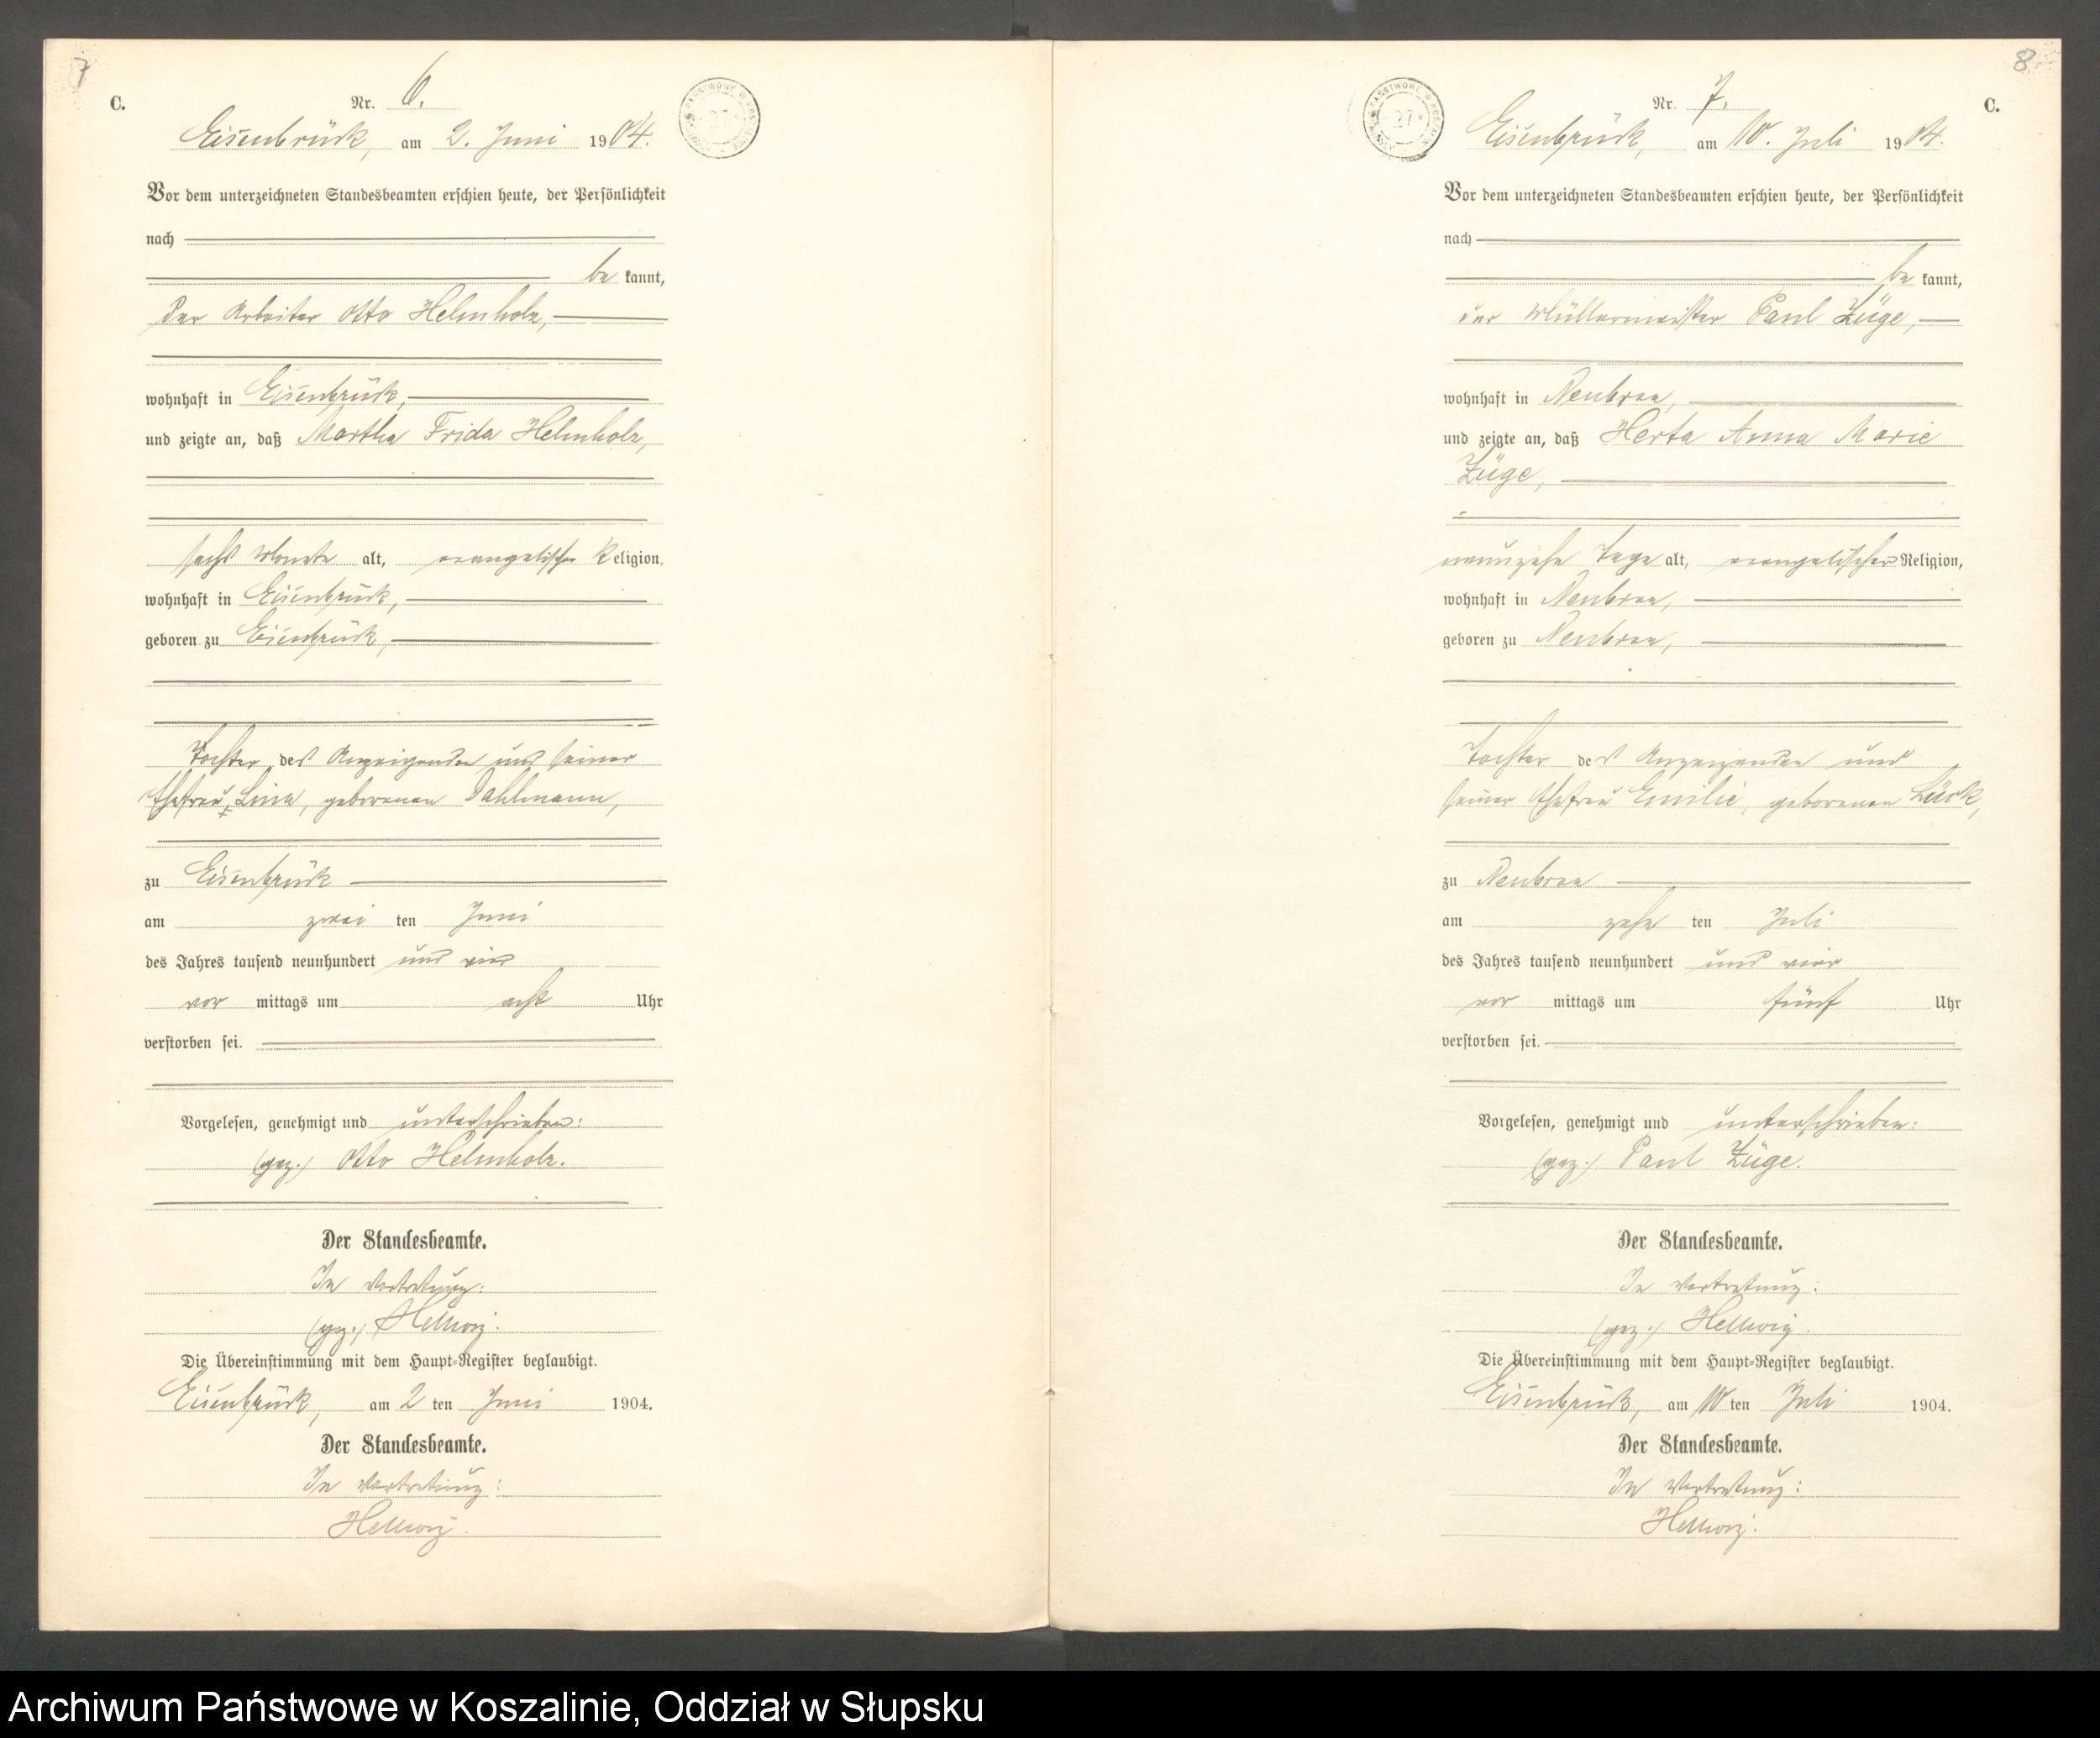 7
C.
Nr. 6.
Eisenbrück, am 2. Juni 1904.
Vor dem unterzeichneten Standesbeamten erschien heute, der Persönlichkeit
nach
be kannt,
der Arbeiter Otto Helmholz,
wohnhaft in Eisenbrück,
und zeigte an, daß Martha Frida Helmholz,
sechs Monate alt, evangelischer Religion,
wohnhaft in Eisenbrück,
geboren zu Eisenbrück,
Tochter des Anzeigenden und seiner
Ehefrau, Lina, geborenen Dahlmann,
zu Eisenbrück
am zwei ten Juni
des Jahres tausend neunhundert und vier
vor mittags um acht Uhr
verstorben sei.
Vorgelesen, genehmigt und unterschrieben:
(gez.) Otto Helmholz.
Der Standesbeamte.
In Vertretung:
(gez.) Hellwig.
Die Übereinstimmung mit dem Haupt-Register beglaubigt.
Eisenbrück, am 2 ten Juni 1904.
Der Standesbeamte.
In Vertretung:
Hellwig.
8
C.
Nr. 7.
Eisenbrück, am 10. Juli 1904.
Vor dem unterzeichneten Standesbeamten erschien heute, der Persönlichkeit
nach
be kannt,
der Müllermeister Paul Züge,
wohnhaft in Neubraa,
und zeigte an, daß Herta Anna Marie
Züge,
neunzehn Tage alt, evangelischer Religion,
wohnhaft in Neubraa,
geboren zu Neubraa,
Tochter des Anzeigenden und
seiner Ehefrau Emilie, geborenen Lück,
zu Neubraa
am zehn ten Juli
des Jahres tausend neunhundert und vier
vor mittags um fünf Uhr
verstorben sei.
Vorgelesen, genehmigt und unterschrieben:
(gez.) Paul Züge.
Der Standesbeamte.
In Vertretung:
(gez.) Hellwig.
Die Übereinstimmung mit dem Haupt-Register beglaubigt.
Eisenbrück, am 10 ten Juli 1904.
Der Standesbeamte.
In Vertretung:
Hellwig.
Archiwum Państwowe w Koszalinie, Oddział w Słupsku